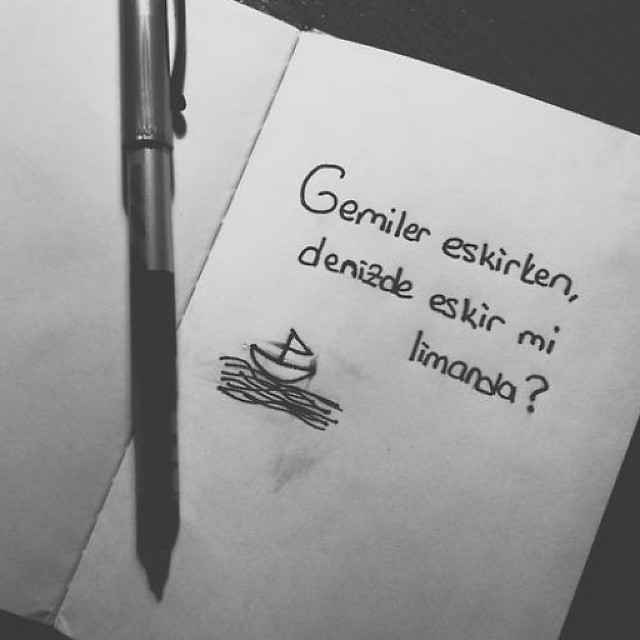 Gemiler eskirken,
denizde eskir mi
limanda?